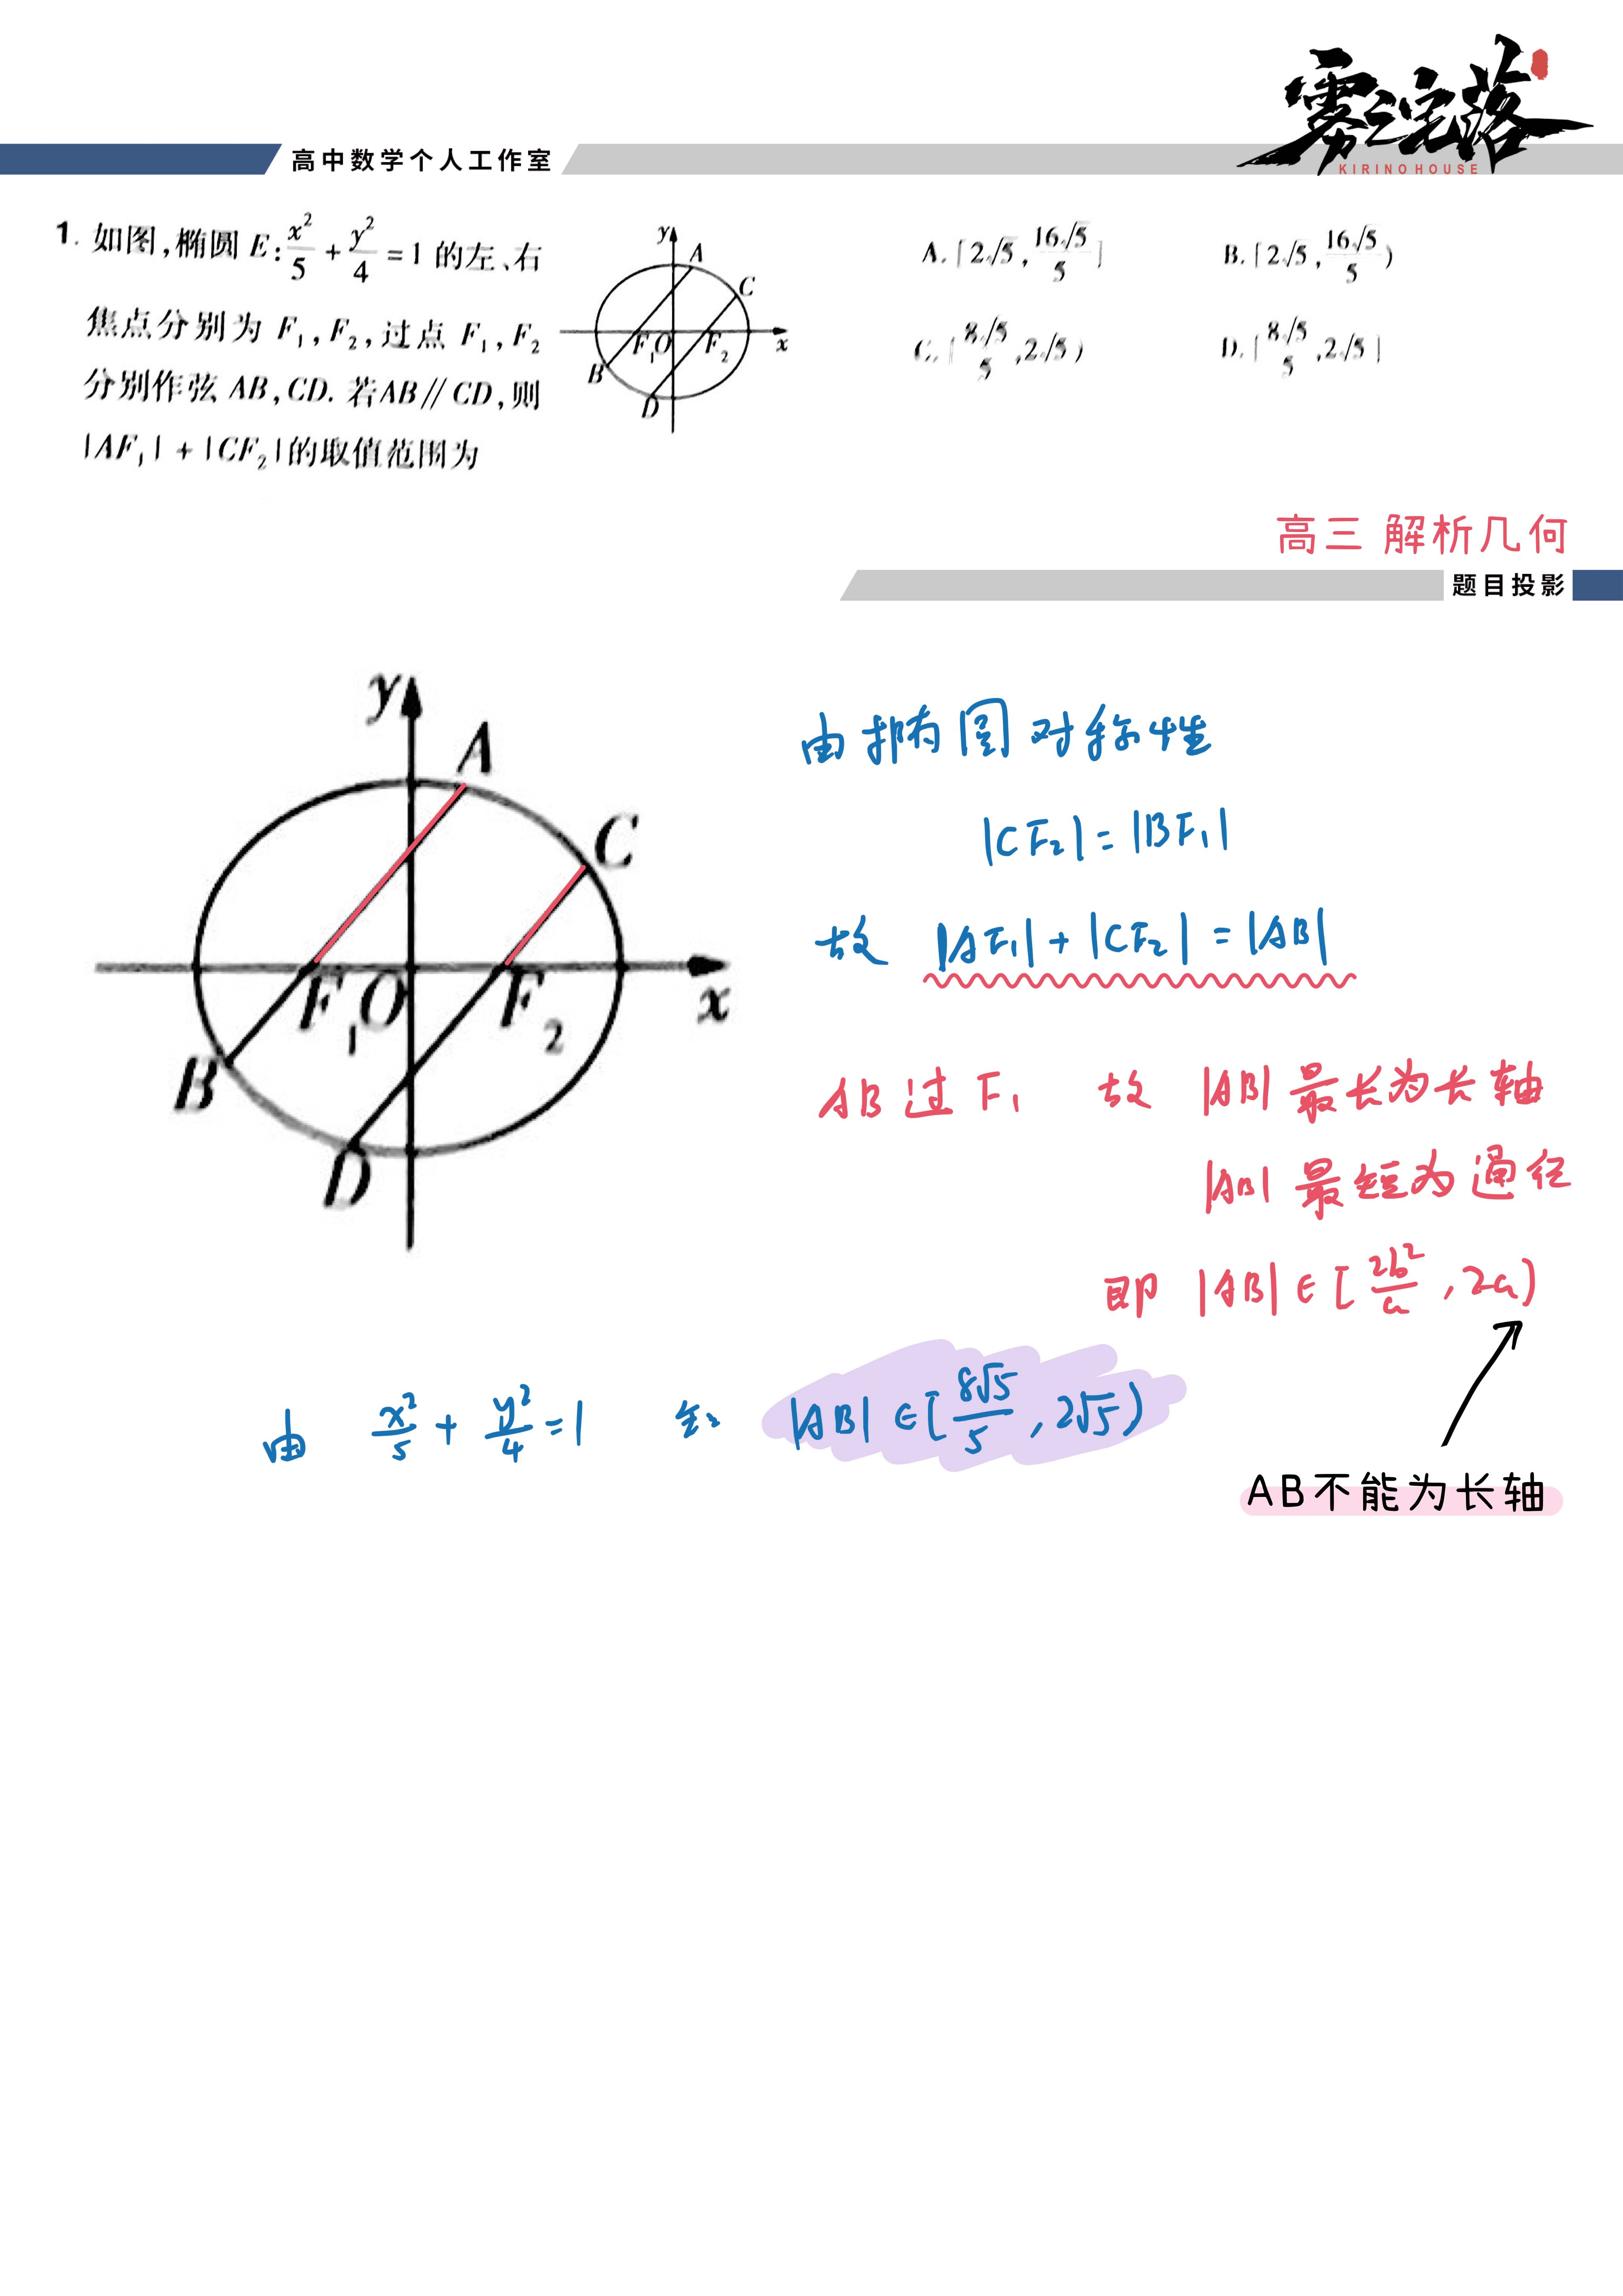 雾之宅落
KIRINO HOUSE
高中数学个人工作室
1. 如图,椭圆 E: x²/5 + y²/4 = 1 的左、右
焦点分别为 F₁, F₂, 过点 F₁, F₂
分别作弦 AB, CD. 若AB∥CD, 则
|AF₁| + |CF₂|的取值范围为
y
A
C
F₁
O
F₂
x
B
D
A. [2√5, 16√5/5]
B. [2√5, 16√5/5)
C. [8√5/5, 2√5)
D. [8√5/5, 2√5]
高三 解析几何
题目投影
y
A
C
F₁
O
F₂
x
B
D
由椭圆对称性
|CF₂| = |BF₁|
故 |AF₁| + |CF₂| = |AB|
AB过F₁ 故 |AB| 最长为长轴
|AB| 最短为通径
即 |AB| ∈ [2b²/a, 2a)
由 x²/5 + y²/4 = 1 知 |AB| ∈ [8√5/5, 2√5)
AB不能为长轴